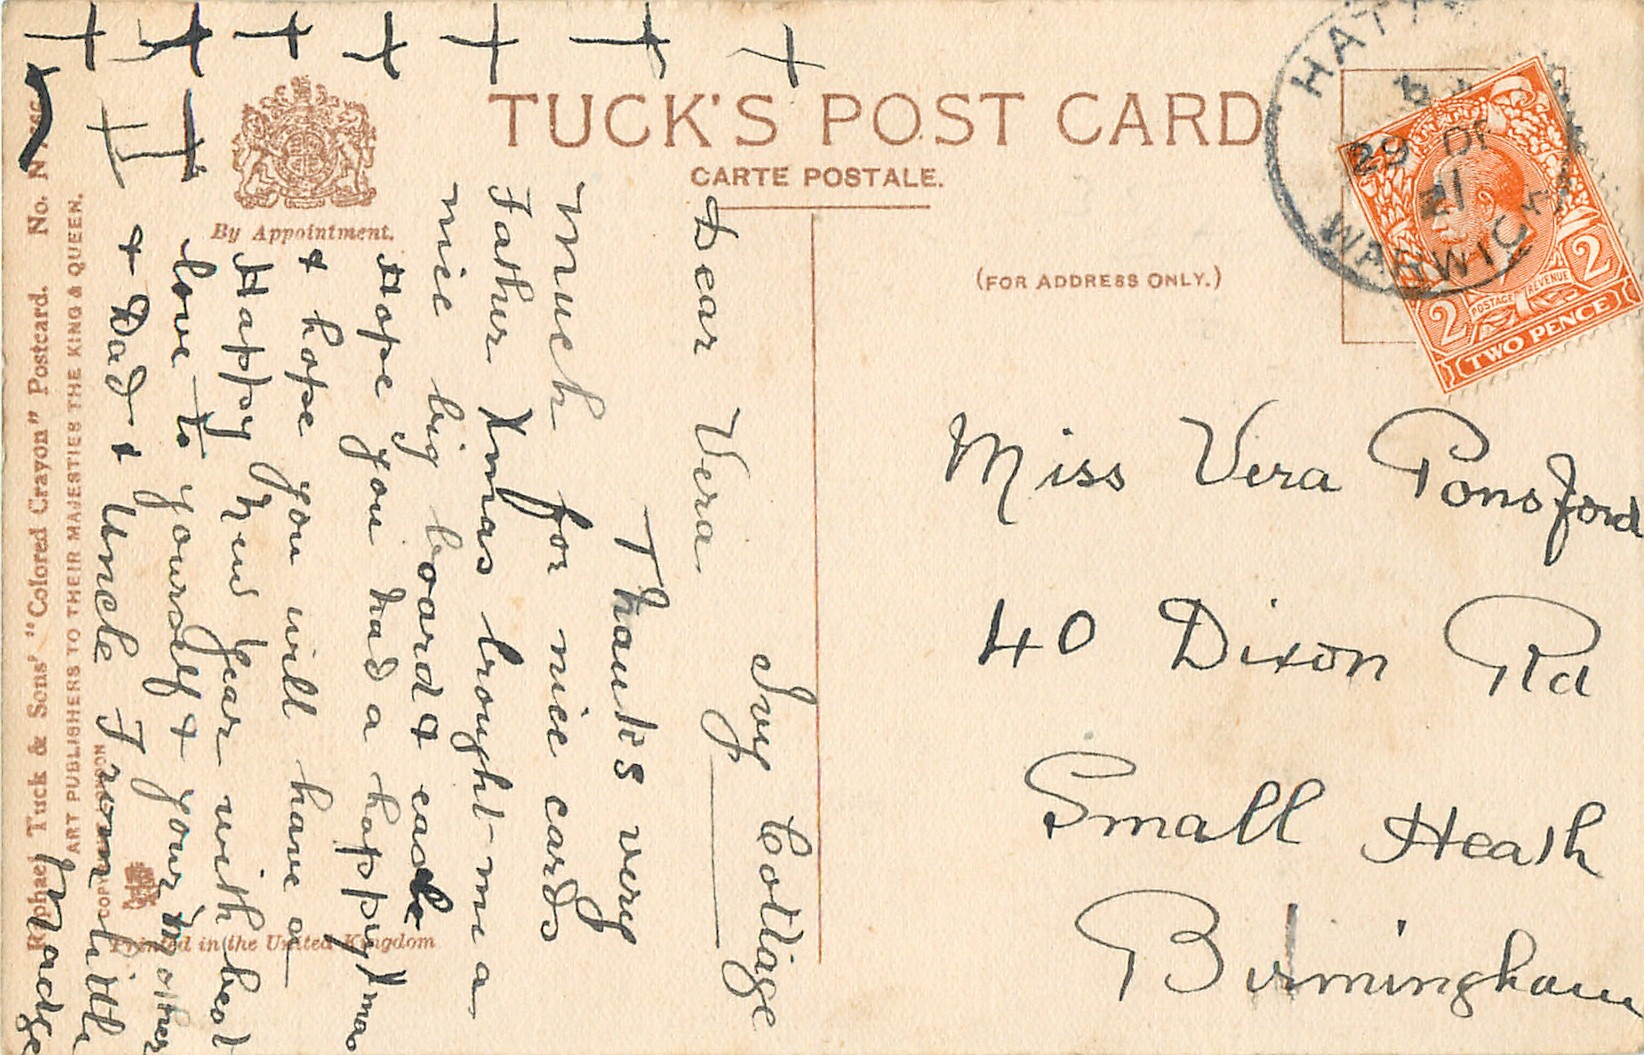 TUCK'S POST CARD
CARTE POSTALE.
(FOR ADDRESS ONLY.)
By Appointment.
29 DE
21
WARWICK
POSTAGE REVENUE
2 2
TWO PENCE
Miss Vera Ponsford
40 Dixon Rd
Small Heath
Birmingham
Ivy Cottage
Dear Vera
Thanks very
much for nice cards
Father Xmas brought me a
nice big board &
Hope you had a happy Xmas
& hope you will have a
Happy New Year with best
love to yourself & your Mother
& Dad & Uncle From little
Madge
Raphael Tuck & Sons' "Colored Crayon" Postcard. No.
ART PUBLISHERS TO THEIR MAJESTIES THE KING & QUEEN.
Printed in the United Kingdom